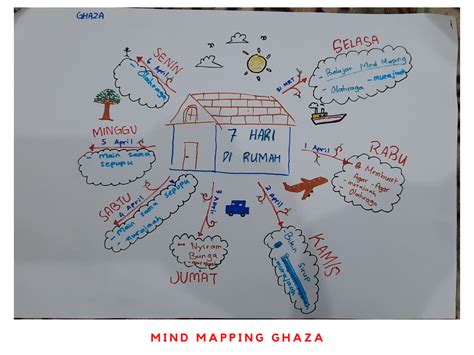 GHAZA
SENIN
6 April
Olahraga
SELASA
31 MRT
- Belajar Mind Mapping
- murajaah
Olahraga
MINGGU
5 April
- main sama
sepupu
7 HARI
DI RUMAH
RABU
1 April
Membuat
Agar-Agar
- murajaah
Olahraga
SABTU
4 April
main sama
sepupu
- murajaah
JUM'AT
3 April
- Nyiram
Bunga
- murajaah
KAMIS
2 April
Bikin Sirup
murajaah
MIND MAPPING GHAZA